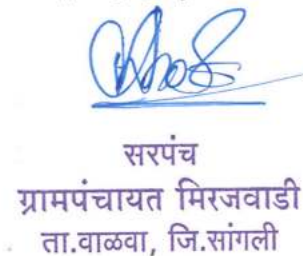 सरपंच
ग्रामपंचायत मिरजवाडी
ता.वाळवा, जि.सांगली